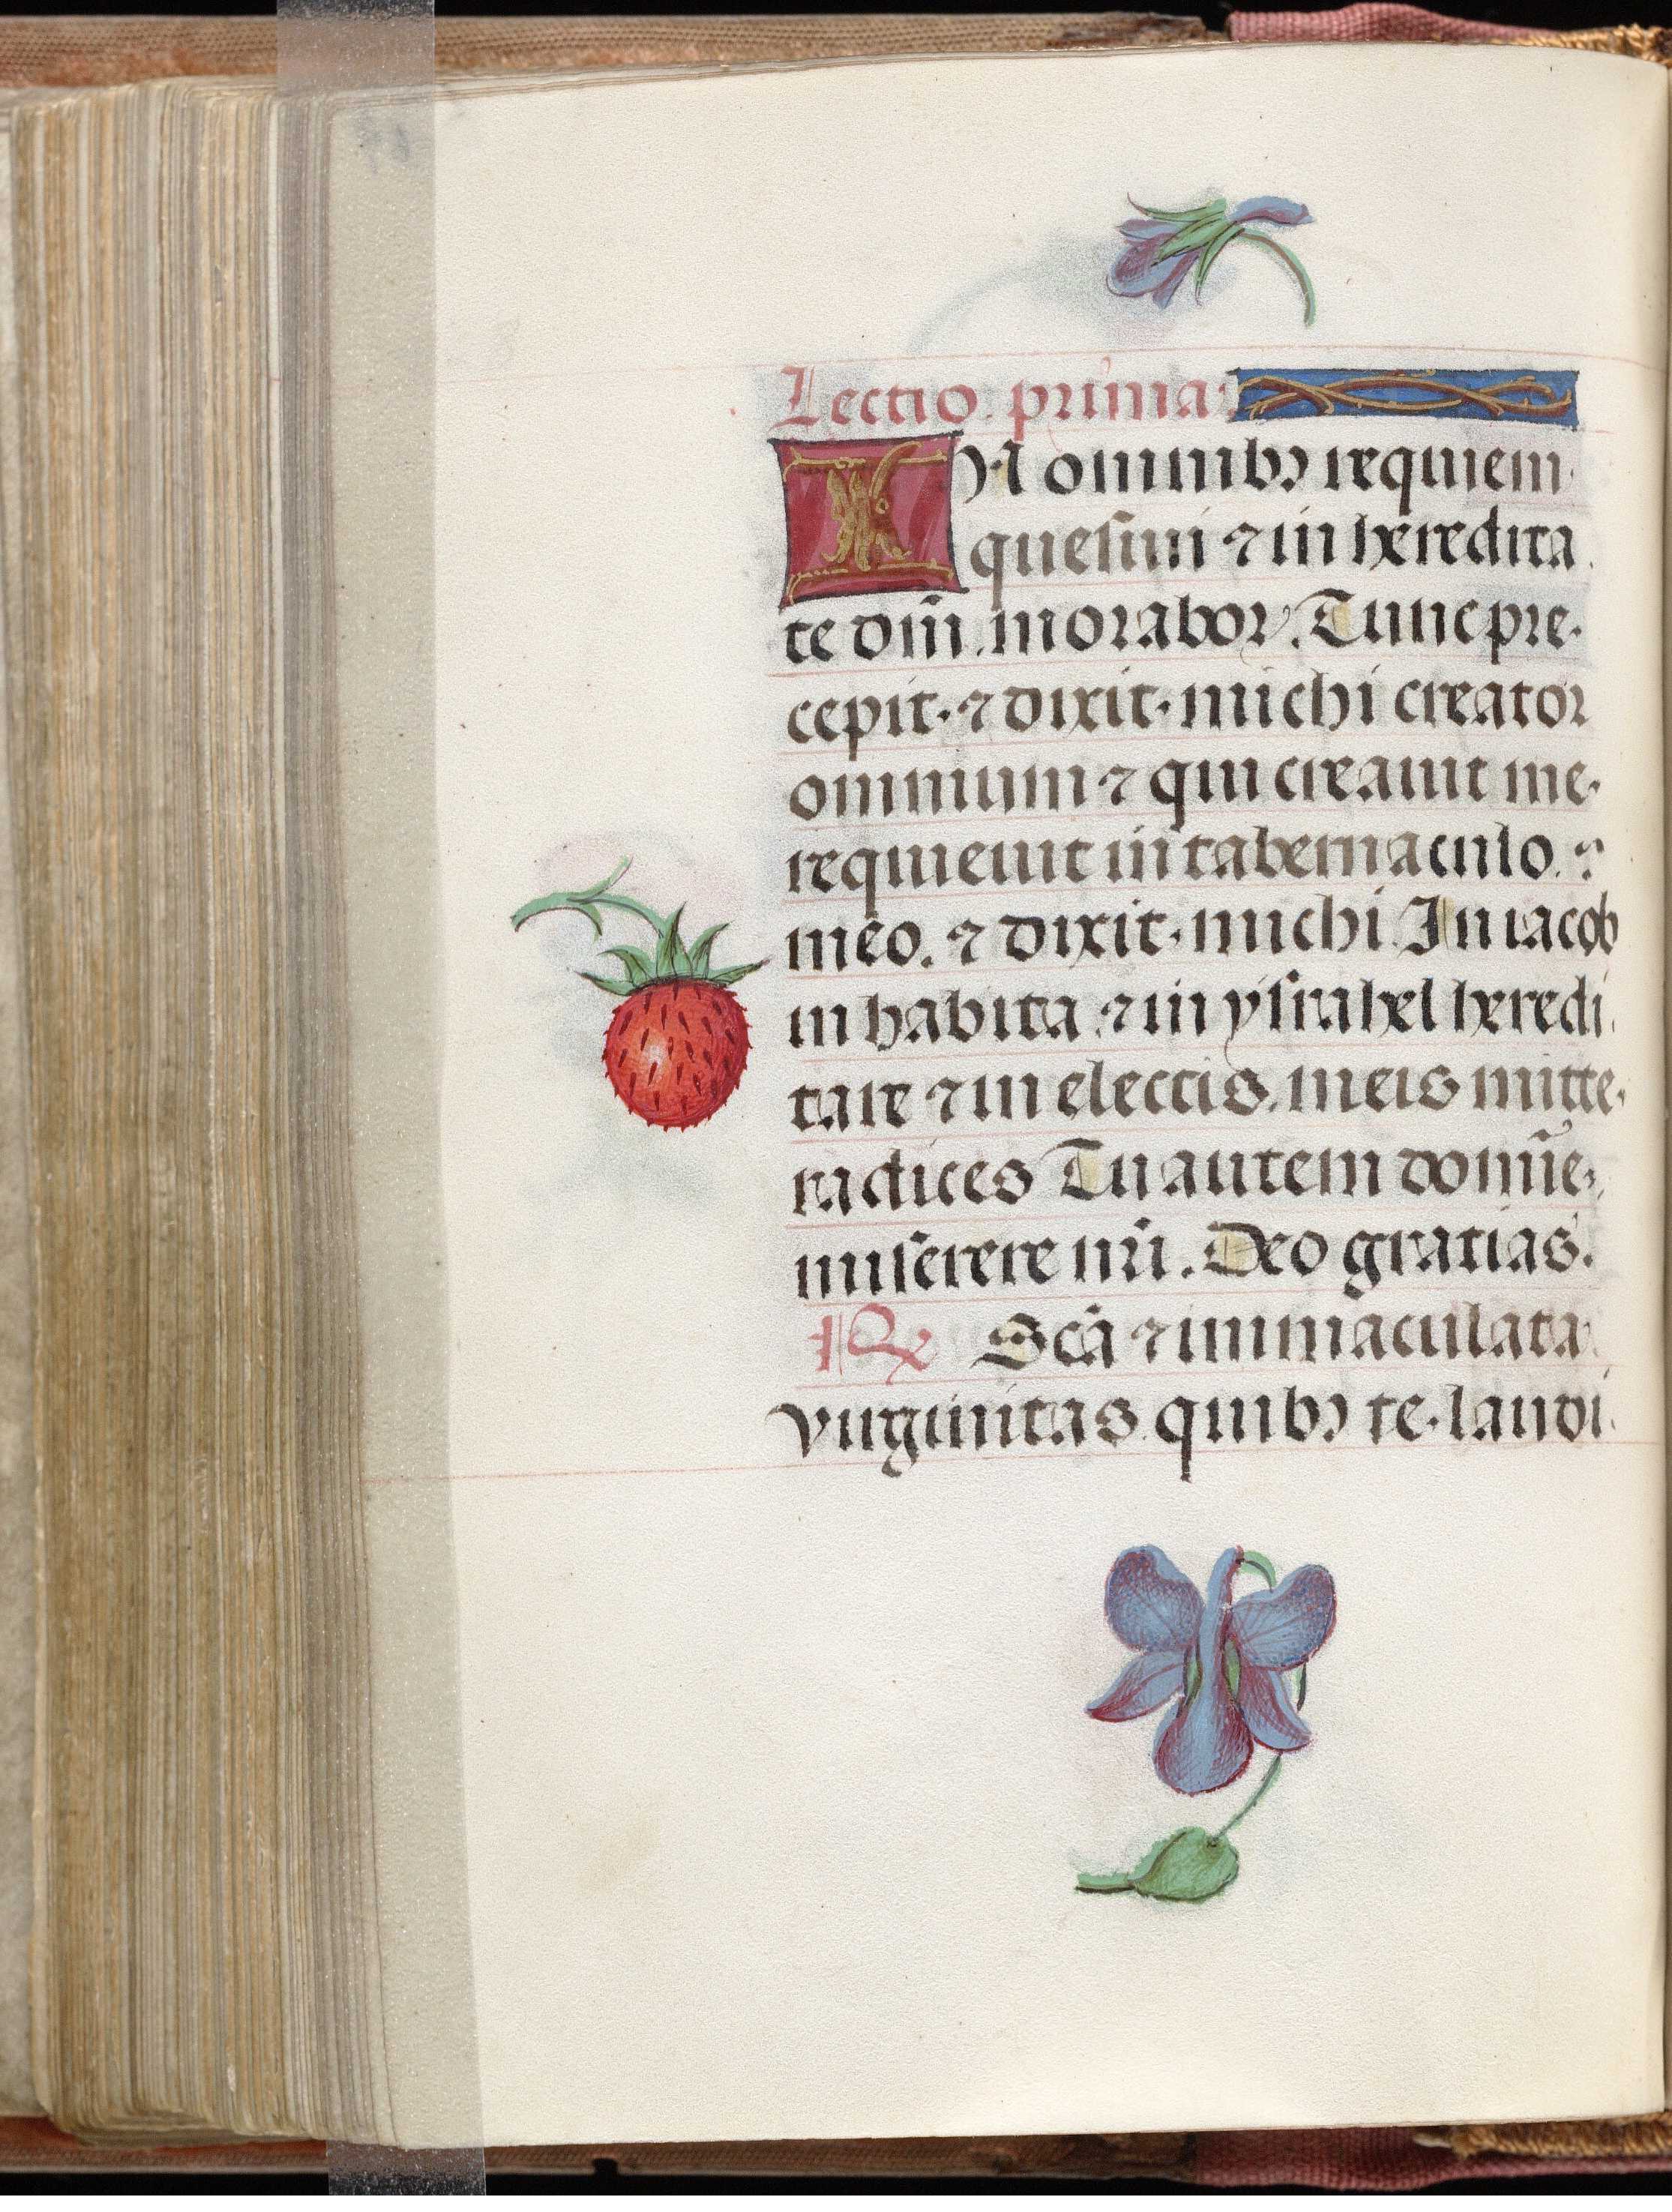 Lectio prima
IN omnibꝫ requiem
quesiui ⁊ in heredita
te dñi morabor. Tunc pre
cepit. ⁊ dixit. michi creator
omnium ⁊ qui creauit me
requieuit in tabernaculo. ⁊
meo. ⁊ dixit. michi. In iacob
in habita. ⁊ in ysrahel heredi
tare ⁊ in electis. meis mitte
radices Tu autem domīe
miserere nr̄i. Deo gratias.
℟ Sc̄a ⁊ immaculata
virginitas quibꝫ te. laudi